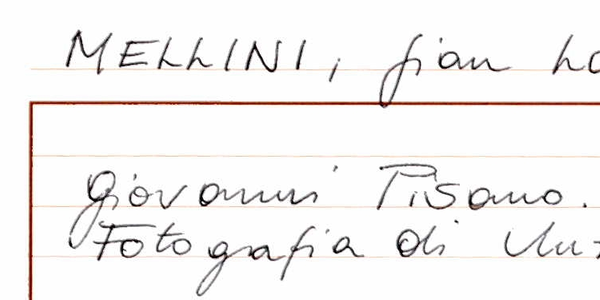 MELLINI, gian
Giovanni Pisano.
Fotografia di